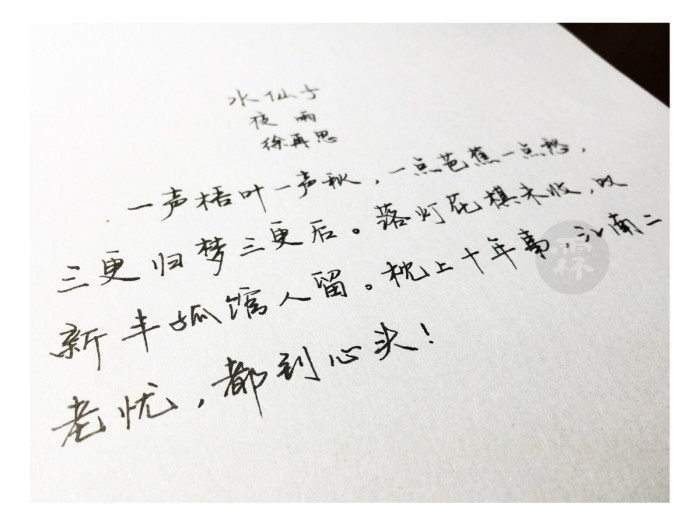 水仙子
夜雨
徐再思
一声梧叶一声秋，一点芭蕉一点愁，
三更归梦三更后。落灯花棋未收，叹
新丰孤馆人留。枕上十年事，江南二
老忧，都到心头！
霖